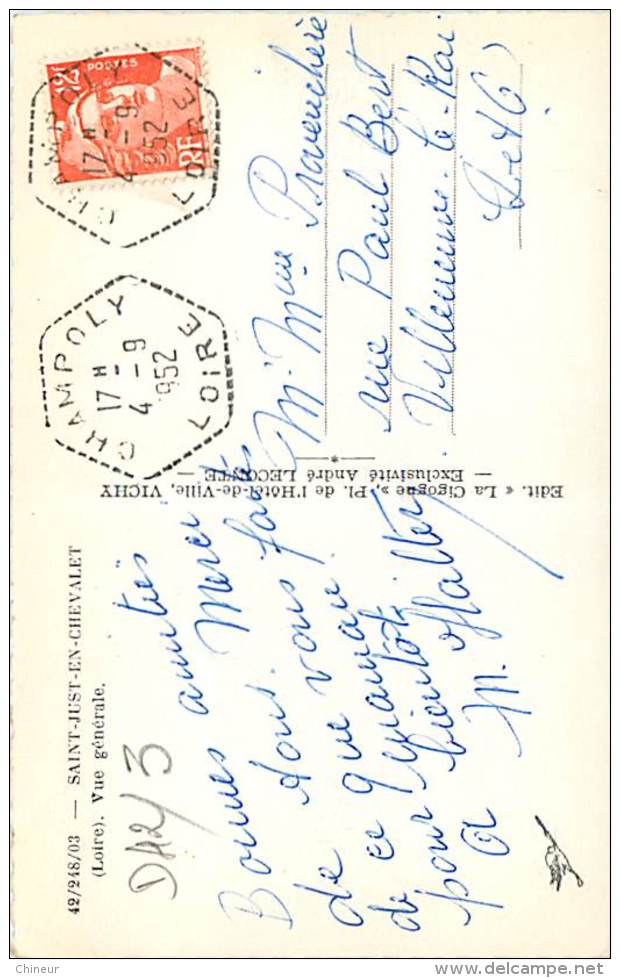 42/248/03 — SAINT-JUST-EN-CHEVALET
(Loire). Vue générale.
DA2/3
Bonnes amitiés
à tous. Merci
de que vous faites
de ce
pour
A bientôt
M.
Edit. « La Cigogne », Pl. de l'Hôtel-de-Ville, VICHY
— Exclusivité André LECONTE —
12F
POSTES
RF
CHAMPOLY
17 H
4 - 9
952
LOIRE
CHAMPOLY
17 H
4 - 9
952
LOIRE
M. Mme
rue Paul Bert
Villeneuve-le-Roi
S et O
Chineur
delcampe.net